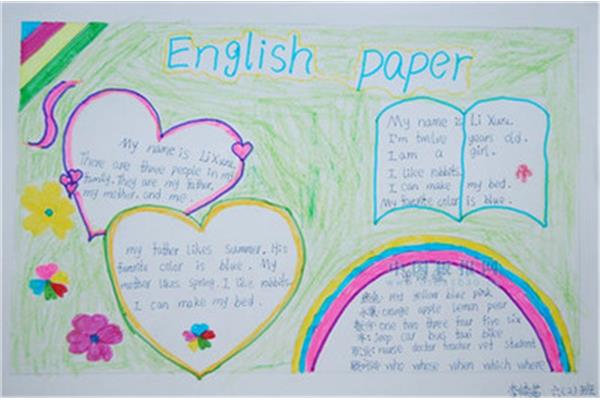 English paper
My name is Li Xuru.
There are three people in my
family. They are my father,
my mother, and me.
My name is Li Xuru.
I'm twelve years old.
I am a girl.
I like rabbits.
I can make my bed.
My favorite color is blue.
my father likes summer. His
favorite color is blue. My
mother likes spring. I like rabbits.
I can make my bed.
yellow blue pink
水果: orange apple lemon pear
数字: one two three four five six
车: jeep car bus taxi bike
职业: nurse doctor teacher vet student
who whose when which where
六(2)班